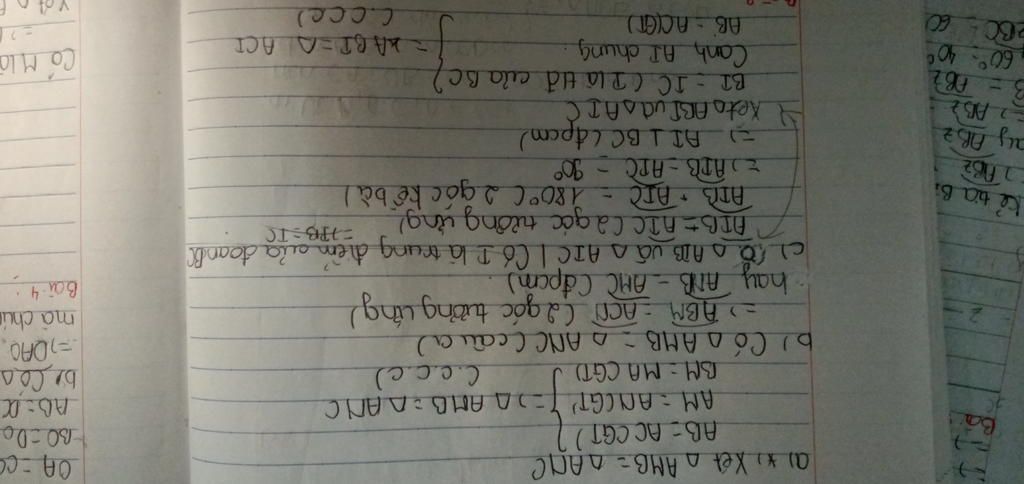 a) *) Xét △ AMB = △ AMC
AB = AC (GT)
AM = AM (GT)
BM = MA (GT)
=> △ AMB = △ AMC
C.C.C)
b) Có △ AMB = △ AMC (câu a)
=> ABM = ACM (2 góc tương ứng)
hay AMB = AMC (đpcm).
c) Có △ AIB và △ AIC | Có I là trung điểm của đoạn BC
=> IB = IC
AIB = AIC (2 góc tương ứng)
AIB + AIC = 180° (2 góc kề bù)
=> AIB = AIC = 90°
=> AI ⊥ BC (đpcm)
Xét △ ABI và △ AIC
BI = IC (I là tđ của BC)
Cạnh AI chung.
AB = AC (GT)
=> △ ABI = △ ACI
C.C.C)
OA = OC
BO = DO
AB = DC
b) Có △
=> DAO
mà chu
Bài 4:
Có M là
Xét △
kẻ tia B
60° = 40°
ABC = 60